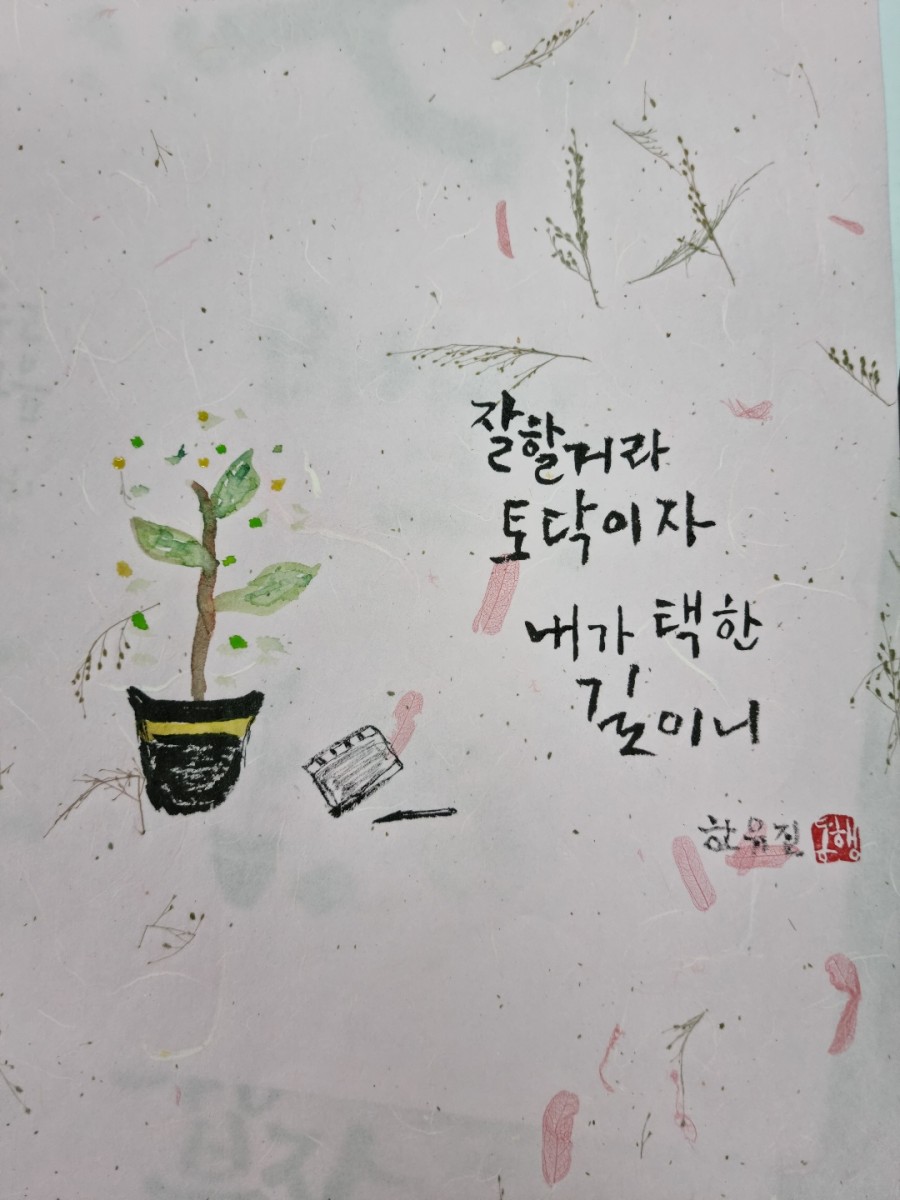 잘할거라
토닥이자
내가 택한
길이니
한유진
동행